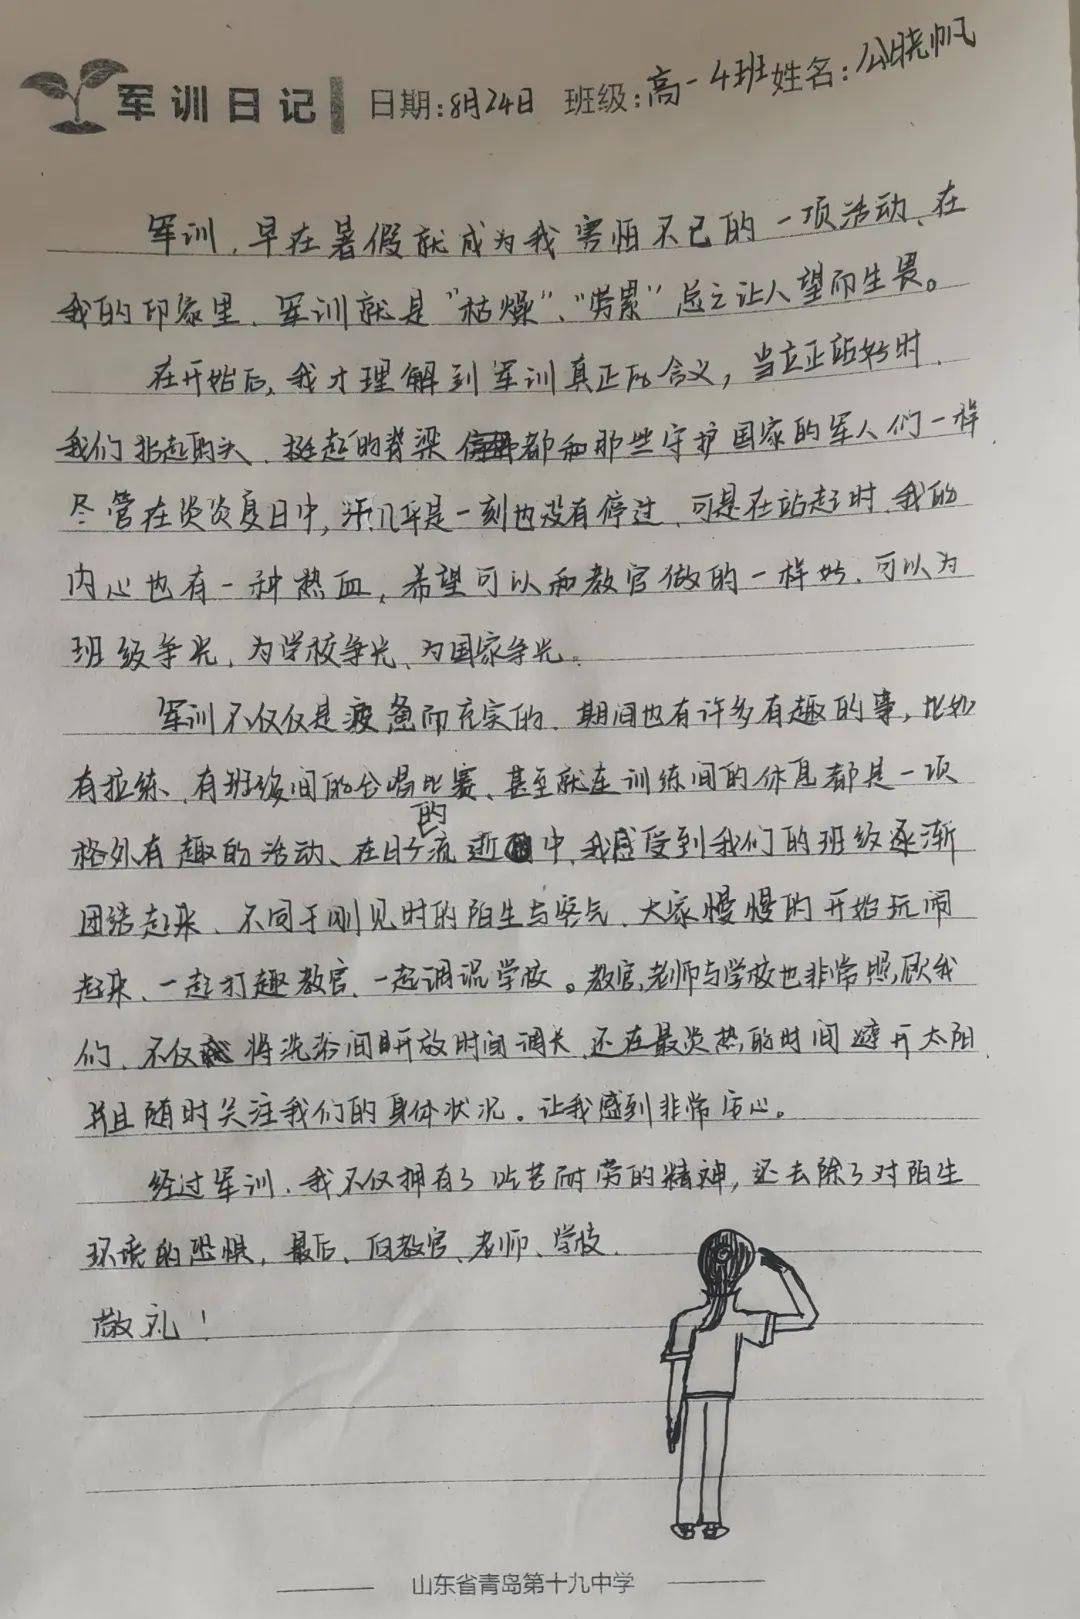 军训日记 日期:8月24日 班级:高一4班 姓名:公晓帆
军训,早在暑假就成为我害怕不已的一项活动、在
我的印象里、军训就是“枯燥”、“劳累”总之让人望而生畏。
在开始后,我才理解到军训真正的含义,当立正站好时、
我们抬起的头、挺起的脊梁都和那些守护国家的军人们一样
尽管在炎炎夏日中,汗几乎是一刻也没有停过、可是在站起时、我的
内心也有一种热血,希望可以和教官做的一样好、可以为
班级争光、为学校争光、为国家争光。
军训不仅仅是疲惫而充实的、期间也有许多有趣的事,比如
有拉练、有班级间的合唱比赛、甚至就连训练间的休息都是一项
格外有趣的活动、在日子的流逝中、我感受到我们的班级逐渐
团结起来、不同于刚见时的陌生与客气、大家慢慢的开始玩闹
起来、一起打趣教官、一起调侃学校。教官,老师与学校也非常照顾我
们、不仅将洗浴间开放时间调长、还在最炎热的时间避开太阳、
并且随时关注我们的身体状况。让我感到非常舒心。
经过军训、我不仅拥有了吃苦耐劳的精神,还去除了对陌生
环境的恐惧,最后、向教官、老师、学校、
敬礼!
山东省青岛第十九中学